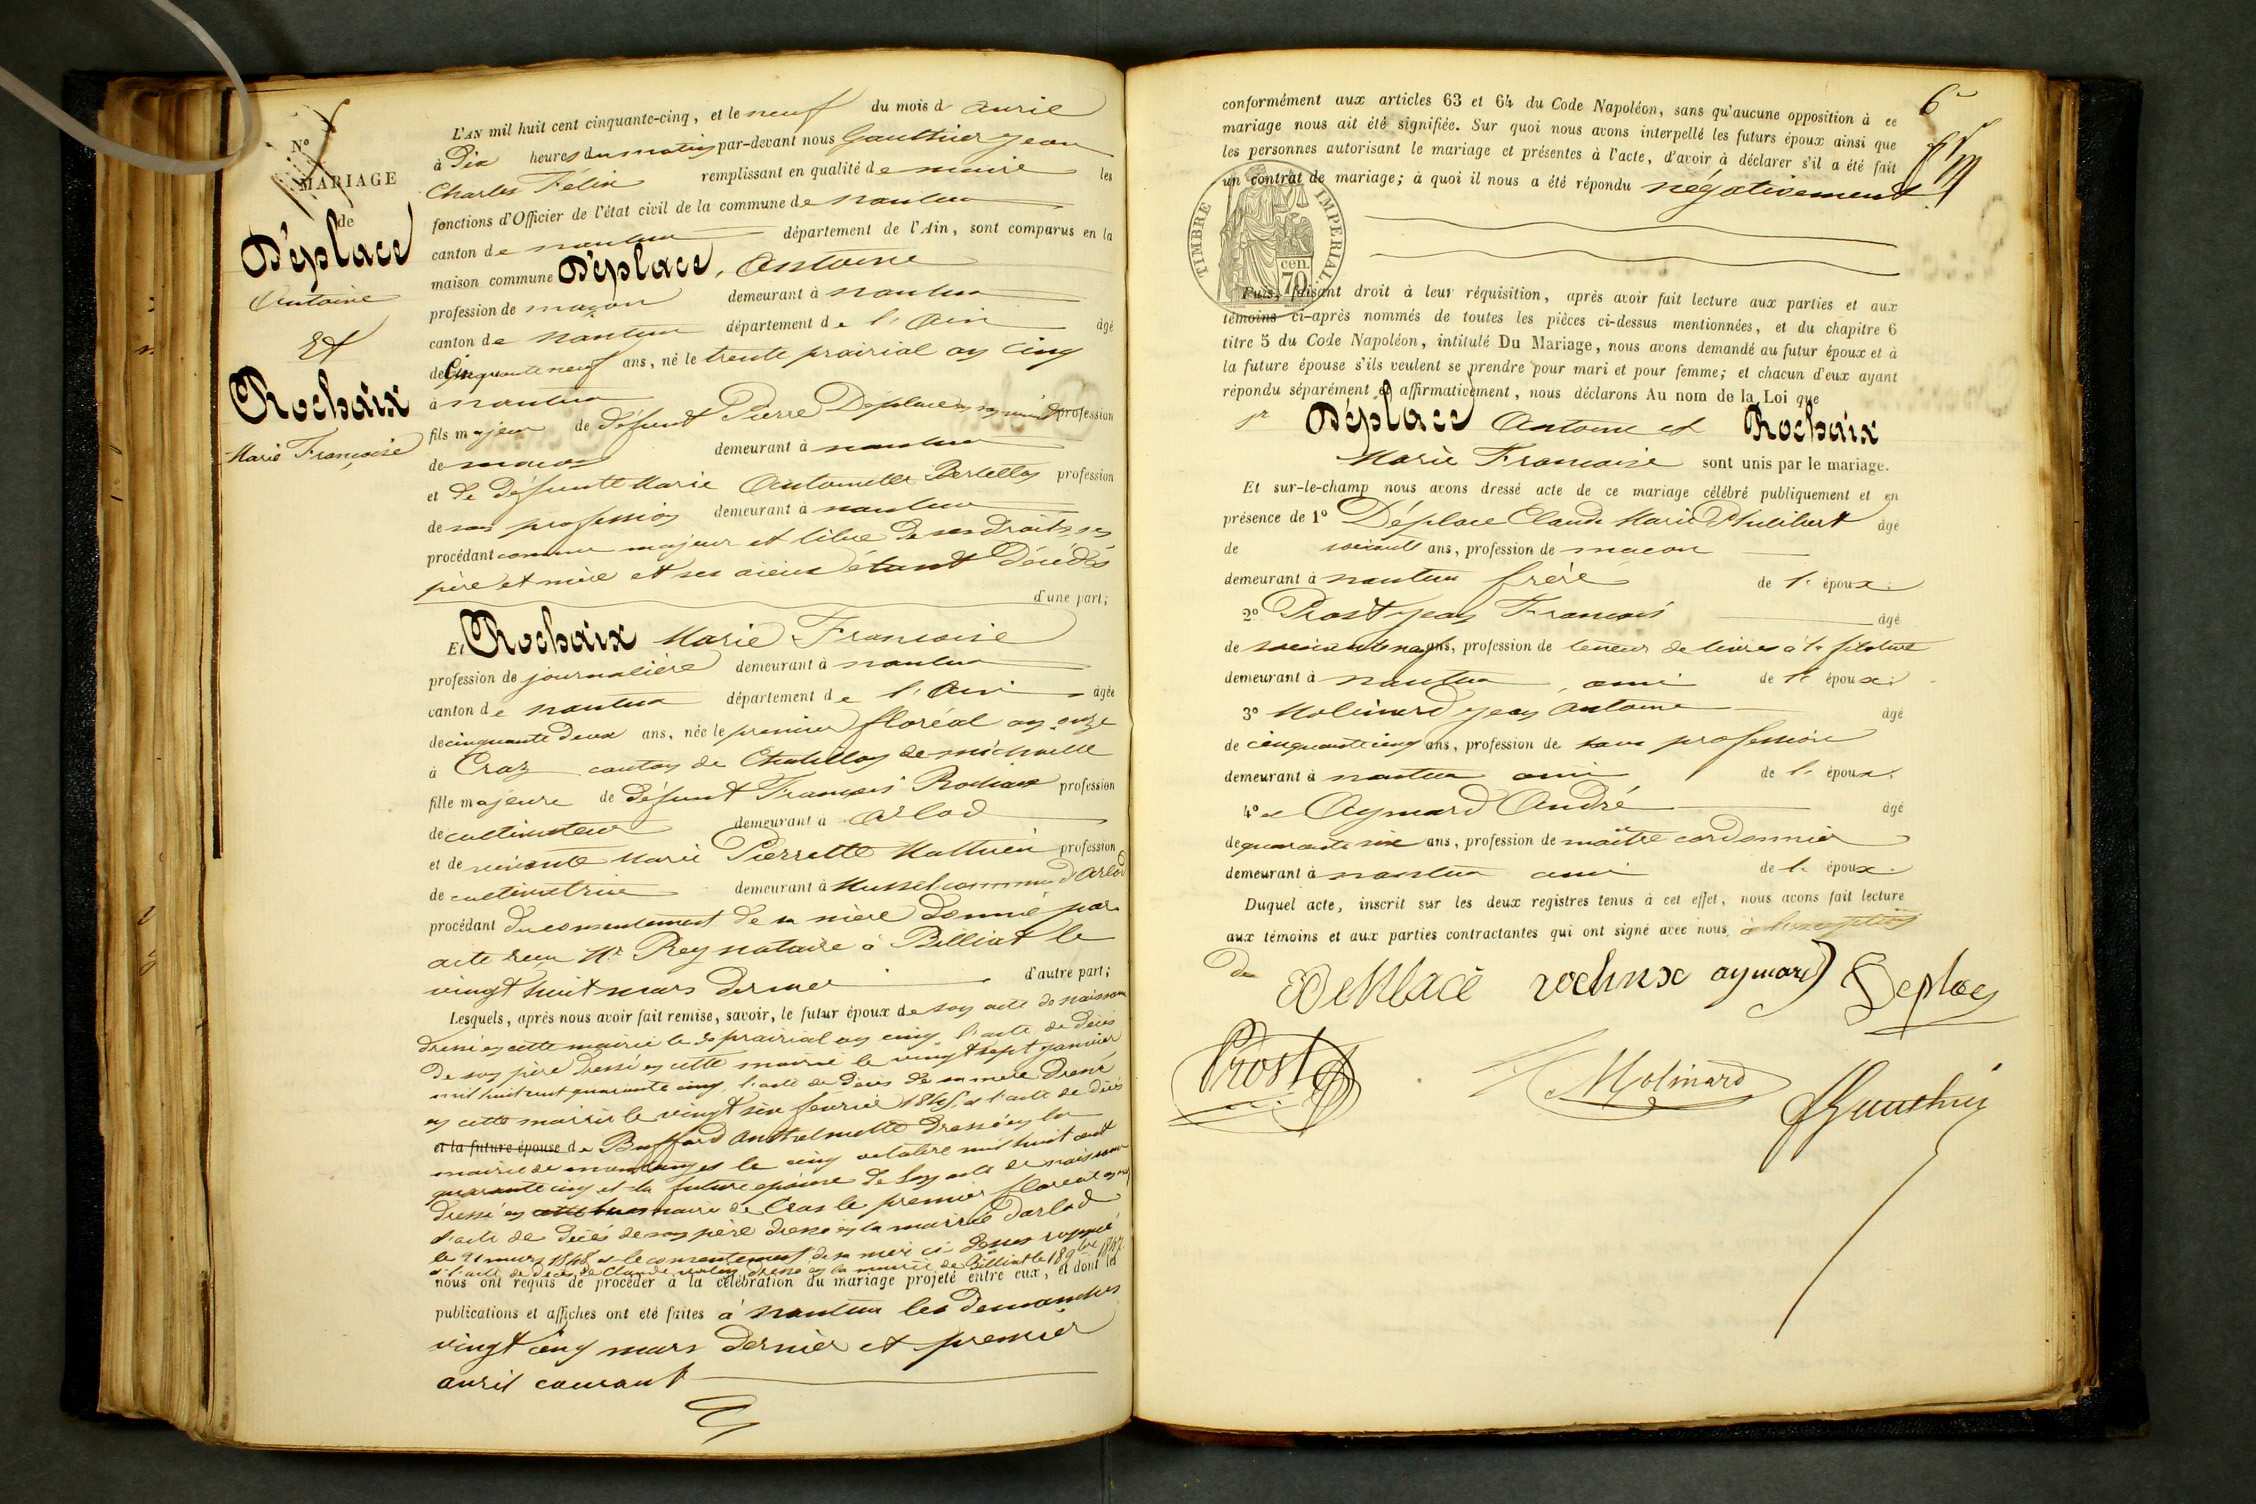 N° 7
MARIAGE
de
Déplace
Antoine
Et
Rochaix
Marie Françoise
L'AN mil huit cent cinquante-cinq, et le neuf du mois d avril
à Dix heures du matin par-devant nous Gauthier Jean
Charles Félix remplissant en qualité de maire les
fonctions d'Officier de l'état civil de la commune de nantua
canton de nantua département de l'Ain, sont comparus en la
maison commune Déplace, Antoine
profession de maçon demeurant à nantua
canton de nantua département de l'Ain âgé
de Cinquante neuf ans, né le trente prairial an cinq
à nantua
fils majeur de défunt Pierre Deplace en son vivant profession
de maçon demeurant à nantua
et de défunte Marie Antoinette profession
de sans profession demeurant à nantua
procédant comme majeur et libre de ses droits, ses
père et mère et ses aïeux étant décédés
d'une part;
Et Rochaix Marie Francoise
profession de journalière demeurant à nantua
canton de nantua département de l'Ain âgée
de cinquante deux ans, née le premier floréal an onze
à Craz canton de Chatillon de michaille
fille majeure de défunt François Rochaix profession
de cultivateur demeurant à arlod
et de vivante Marie Pierrette Mathieu profession
de cultivatrice demeurant à Mussel commune d'Arlod
procédant du consentement de sa mère donné par
acte reçu Me Rey notaire à Billiat le
vingt huit mars dernier d'autre part;
Lesquels, après nous avoir fait remise, savoir, le futur époux de son acte de naissance
dressé en cette mairie le 30 prairial an cinq, l'acte de décès
de son père dressé en cette mairie le vingt sept janvier
mil huit cent quarante cinq, l'acte de décès de sa mère dressé
en cette mairie le vingt six fevrier 1845, et l'acte de décès
et la future épouse de Buffard Anthelmette dressé en la
mairie de le cinq octobre mil huit cent
quarante cinq et la future épouse de son acte de naissance
dressé en mairie de Cras le premier floréal an
l'acte de décès de son père dressé en la mairie d'arlod
le 21 mars 1848 et le consentement de sa mère ci-dessus rappelé
et l'acte de décès de Claude dressé en la mairie de Billiat le 18
nous ont requis de procéder à la célébration du mariage projeté entre eux, et dont les
publications et affiches ont été faites à nantua les demanches
vingt cinq mars dernier et premier
avril courant
6
conformément aux articles 63 et 64 du Code Napoléon, sans qu'aucune opposition à ce
mariage nous ait été signifiée. Sur quoi nous avons interpellé les futurs époux ainsi que
les personnes autorisant le mariage et présentes à l'acte, d'avoir à déclarer s'il a été fait
un contrat de mariage; à quoi il nous a été répondu négativement
TIMBRE IMPERIAL
cen.
70
Puis, faisant droit à leur réquisition, après avoir fait lecture aux parties et aux
témoins ci-après nommés de toutes les pièces ci-dessus mentionnées, et du chapitre 6
titre 5 du Code Napoléon, intitulé Du Mariage, nous avons demandé au futur époux et à
la future épouse s'ils veulent se prendre pour mari et pour femme; et chacun d'eux ayant
répondu séparément et affirmativement, nous déclarons Au nom de la Loi que
Déplace Antoine et Rochaix
Marie Francoise sont unis par le mariage.
Et sur-le-champ nous avons dressé acte de ce mariage célébré publiquement et en
présence de 1° Déplace Claude Marie Philibert âgé
de soixante ans, profession de macon
demeurant à nantua frère de l' époux.
2° Prost Jean François âgé
de ans, profession de teneur de livres à la filature
demeurant à nantua ami de l' époux.
3° Molinard Jean Antoine âgé
de cinquante cinq ans, profession de sans profession
demeurant à nantua ami de l' époux.
4° et Aymard André âgé
de quarante six ans, profession de maître cordonnier
demeurant à nantua ami de l' époux.
Duquel acte, inscrit sur les deux registres tenus à cet effet, nous avons fait lecture
aux témoins et aux parties contractantes qui ont signé avec nous,
Deplace rochaix aymard Deplace
Prost Molinard Gauthier